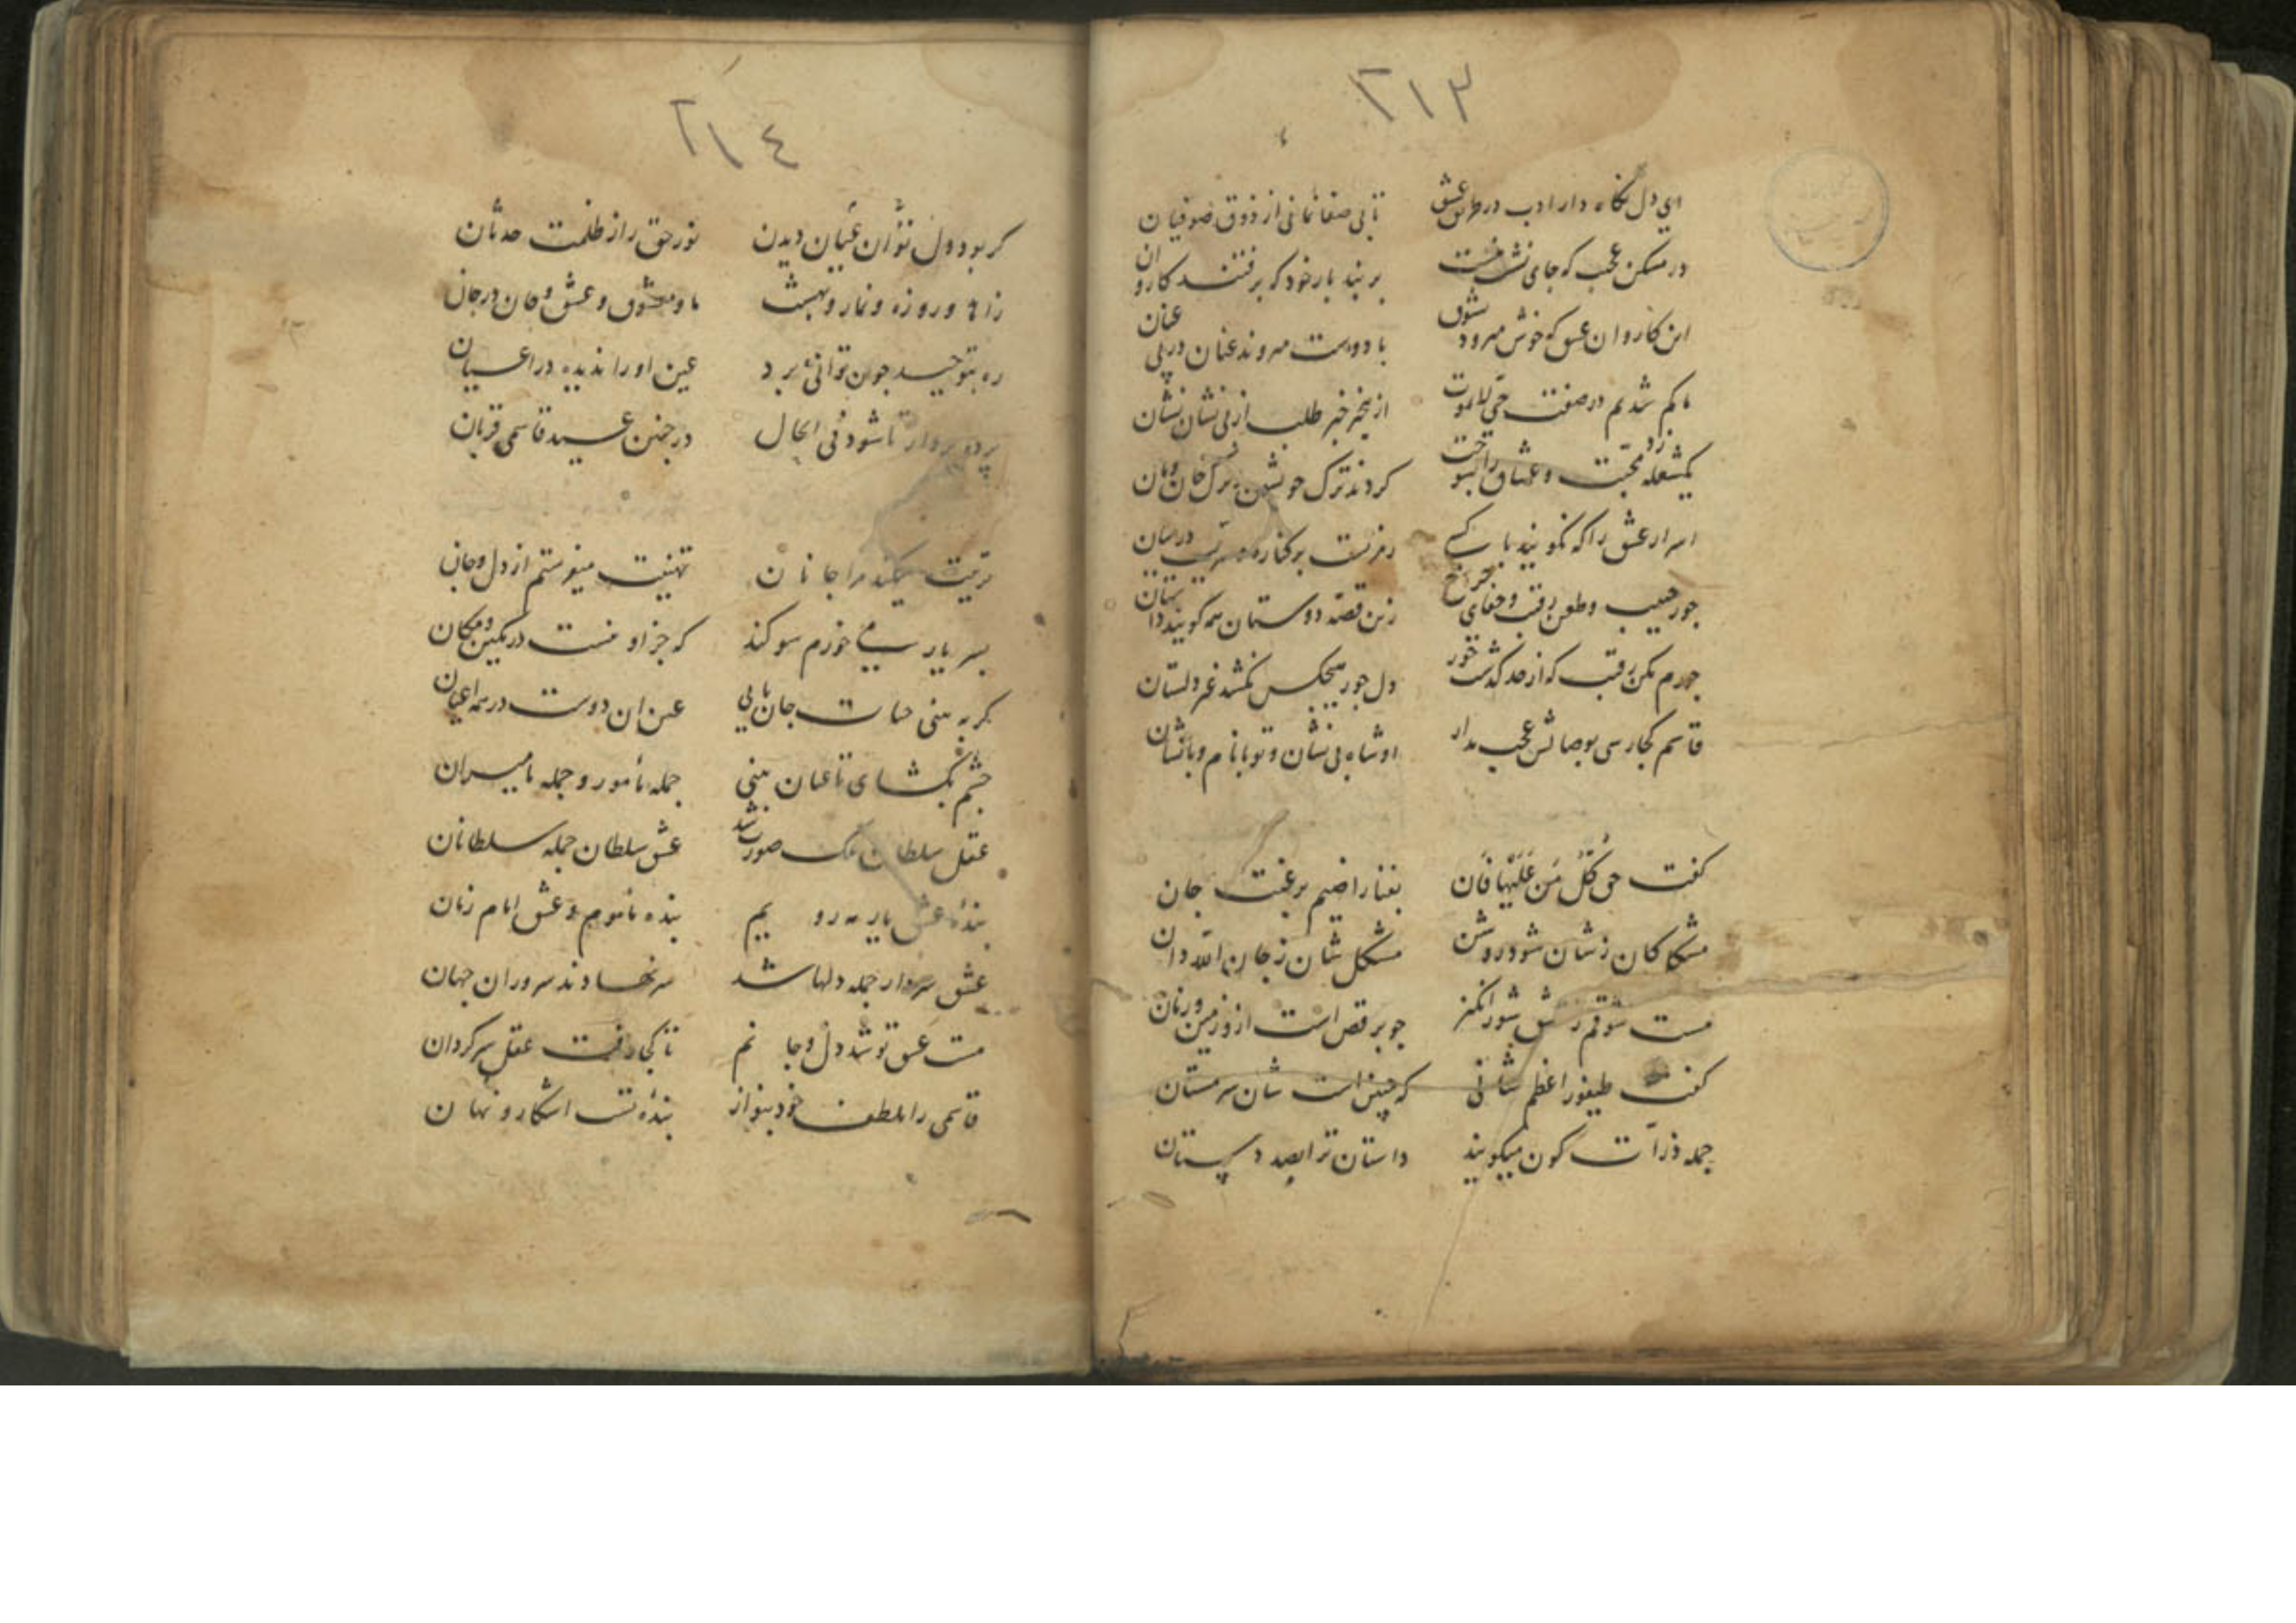 ٢١٣
ای دل نگاه دار ادب در طریق عشق تا بی صفا نمانی از ذوق صوفیان
در مسکن عجب که جای نشست نیست بربند بار خود که برفتند کاروان
این کاروان عشق که خوش میرود بشوق با دوست میروند عنان در پی عنان
ما کم شدیم در صفت حی لایموت از بیخبر خبر طلب از بی نشان نشان
یکشعله زد محبت و عشاق را بسوخت کردند ترک خویشتن و ترک خان و مان
اسرار عشق را که نگویند با کسی رمزیست بر کناره و سریست در میان
جور حبیب و طعن رقیب و جفای چرخ زین قصه دوستان همه گویند داستان
جورم مکن رقیب که از حد گذشت خود دل جور هیچکس نکشد غیر دلستان
قاسم کجا رسی بوصالش عجب مدار او شاه بی نشان و تو با نام و با نشان
گفت حق کُلُّ مَن عَلَیْها فَان بفنا راضیم برغبت جان
مشکلا کان ز شان شود روشن مشکل شان ز جان الله دان
مست شوقم ز عشق شورانگیز چو برقص است ازو زمین و زمان
گفت طیفور اعظم شانی که چنین است شان سرمستان
جمله ذرات کون میگویند داستان ترا بصد دستان
٢١٤
کر بود دل توان عیان دیدن نور حق را از ظلمت حدثان
زاهد و روزه و نماز و بهشت ما و معشوق و عشق و جان در جان
ره بتوحید چون توانی برد عین او را ندیده در اعیان
پرده بردار تا شود فی الحال در چنین عید قاسمی قربان
تربیت میکند مرا جانان تهنیت میفرستم از دل و جان
بسر یار می خورم سوکند که جز او نیست در مکین و مکان
کر به بینی حیات جان یابی عین آن دوست در همه اعیان
چشم بگشای تا عیان بینی جمله مأمور و جمله بامیران
عقل سلطان ملک صورت شد عشق سلطان جمله سلطانان
بنده عشق یار مه رویم بنده مأموم و عشق امام زمان
عشق سردار جمله دلها شد سر نهادند سروران جهان
مست عشق تو شد دل و جانم تا کجا رفت عقل سرکردان
قاسمی را بلطف خود بنواز بنده تست آشکار و نهان